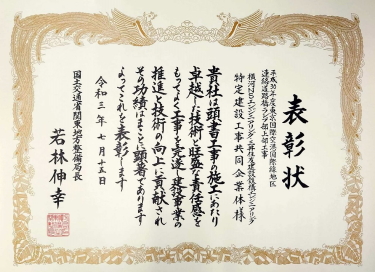 表彰状
平成30年度東京国際空港国際線地区
連絡道路橋ランプ部上部工事
特定建設工事共同企業体様
貴社は頭書工事の施工にあたり
卓越した技術と旺盛な責任感を
もってよく工事を完遂し建設事業の
推進と技術の向上に貢献され
その功績はまことに顕著であります
よってこれを表彰します
令和三年七月十五日
国土交通省関東地方整備局長
若林伸幸